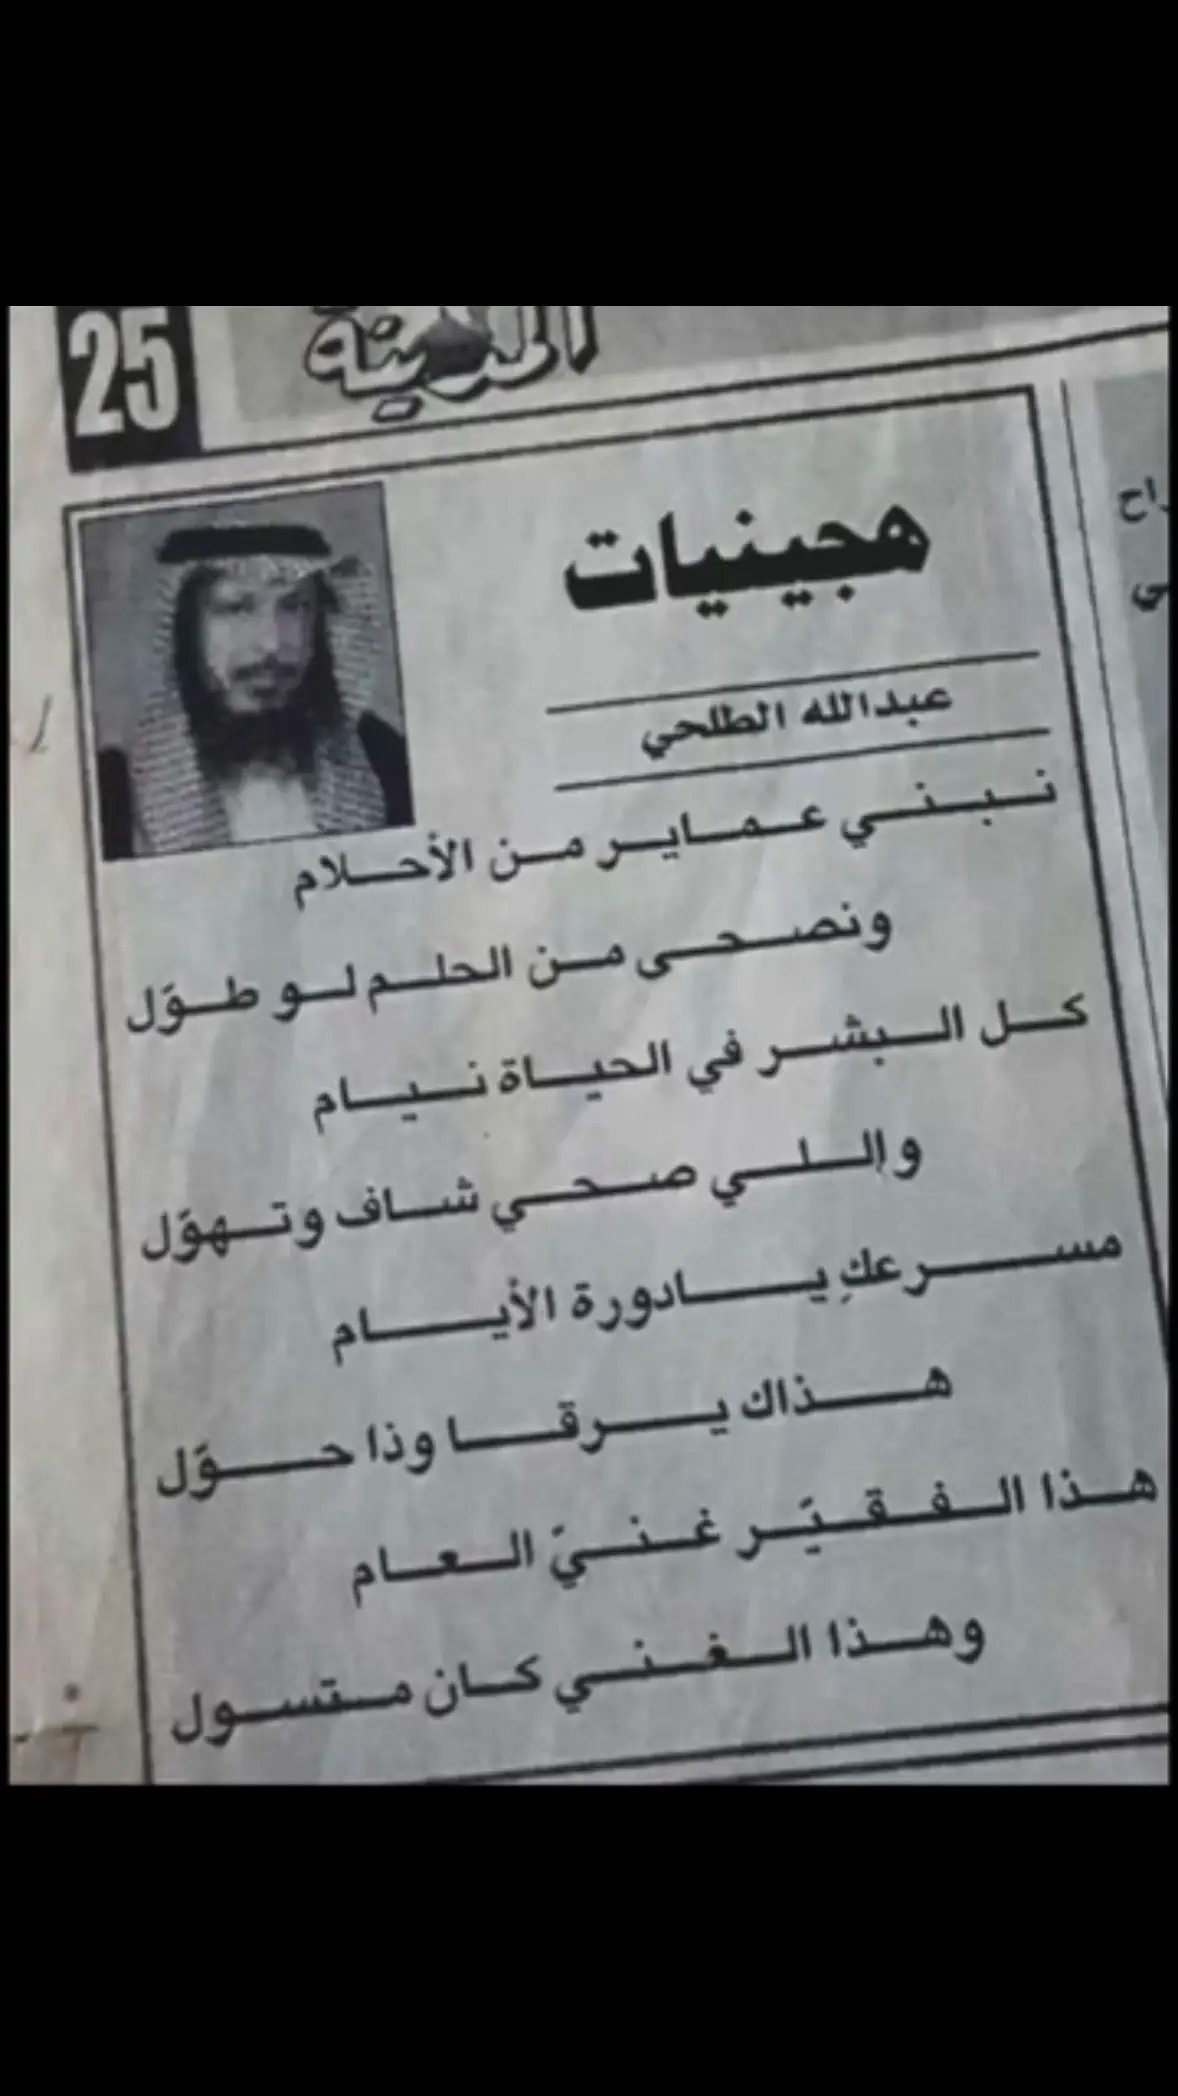 25
المدينة
هجينيات
عبدالله الطلحي
نبني عماير من الأحلام
ونصحى من الحلم لو طوّل
كل البشر في الحياة نيام
واللي صحي شاف وتهوّل
مسرعكِ يادورة الأيام
هذاك يرقا وذا حوّل
هذا الفقيّر غنيّ العام
وهذا الغني كان متسول